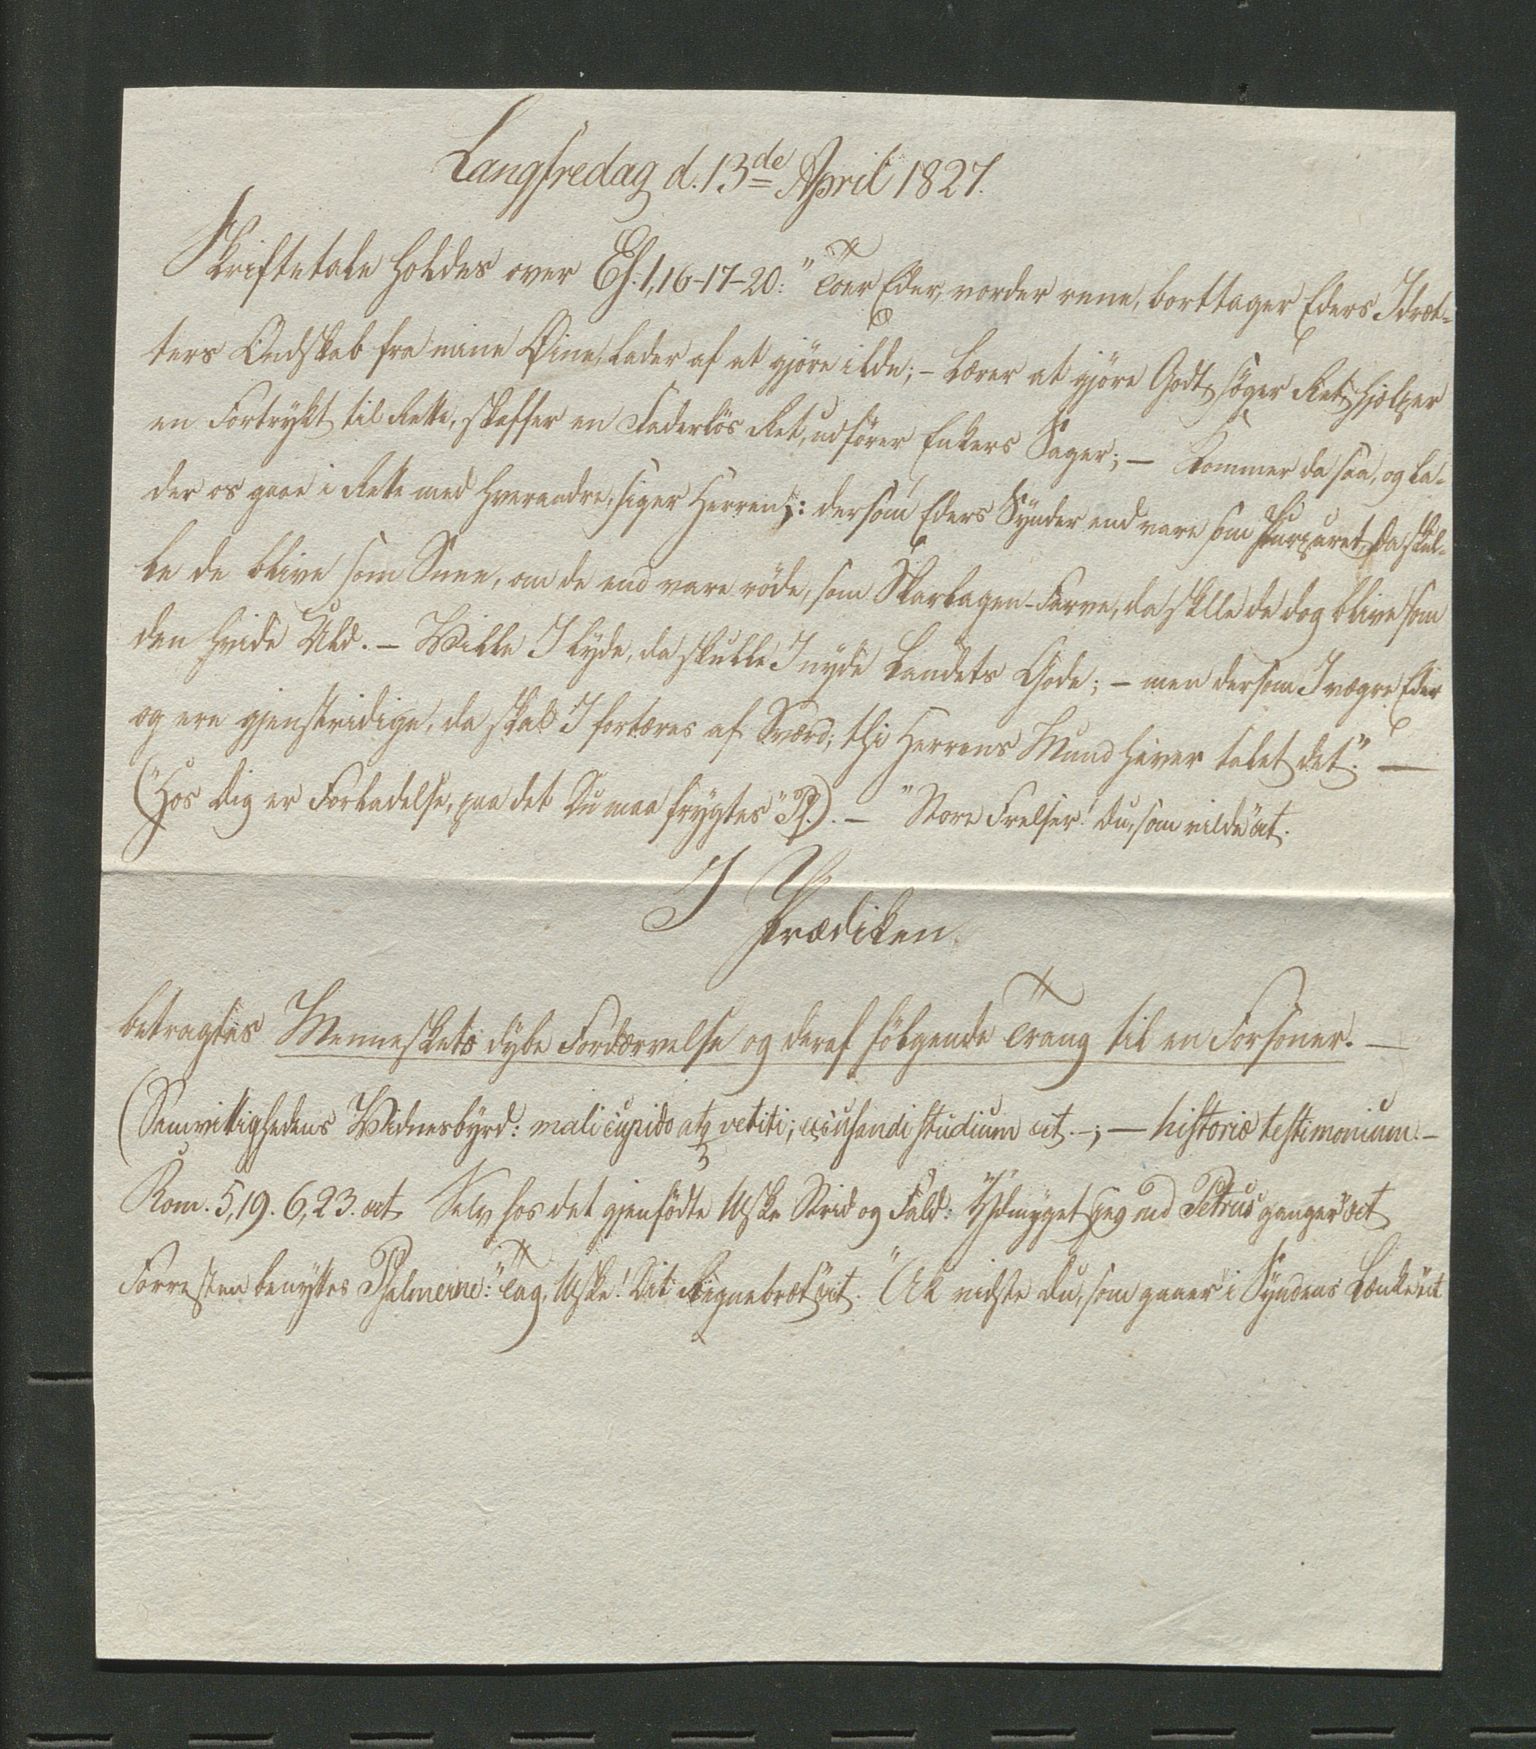 Langfredag d. 13de April 1827.
Skriftetale holdes over Es. 1, 16-17-20: "Toer Eder, vorder rene, borttager Eders Idræt-
ters Ondskab fra mine Øine, lader af at gjöre ilde; – Lærer at gjöre Godt, söger Ret, hjelper
en Fortrykt til Rette, skaffer en Faderlös Ret, udförer Enkers Sager; – Kommer da saa, og la-
der os gaae i Rette med hverandre, siger Herren: dersom Eders Synder end vare som Purpuret, da skul-
le de blive som Snee, om de end vare röde, som Skarlagen-Farve, da skulle de dog blive som
den hvide Uld. – Ville I lyde, da skulle I nyde Landets Gode; – men dersom I vægre Eder
og ere gjenstridige, da skal I fortæres af Sværd; thi Herrens Mund haver talet det". –
("Hos dig er Forladelse, paa det Du maa frygtes" Ps.). – "Store Frelser! Du, som vilde" ect.
I Prædiken
betragtes Menneskets dybe Fordærvelse og deraf fölgende Trang til en Forsoner. –
(Samvittighedens Vidnesbyrd: mali cupido atq vetiti; excusandi studium ect. –; – historiæ testimonium. –
Rom. 5, 19. 6, 23. ect. Selv hos det gjenfödte Mske Strid og Fald: "Ydmyget jeg med Petrus ganger" ect
Forresten benyttes Psalmerne: "Tag, Mske! Dit Regnebræt" ect. "Ak vidste du, som gaaer i Syndens Lænke" ect